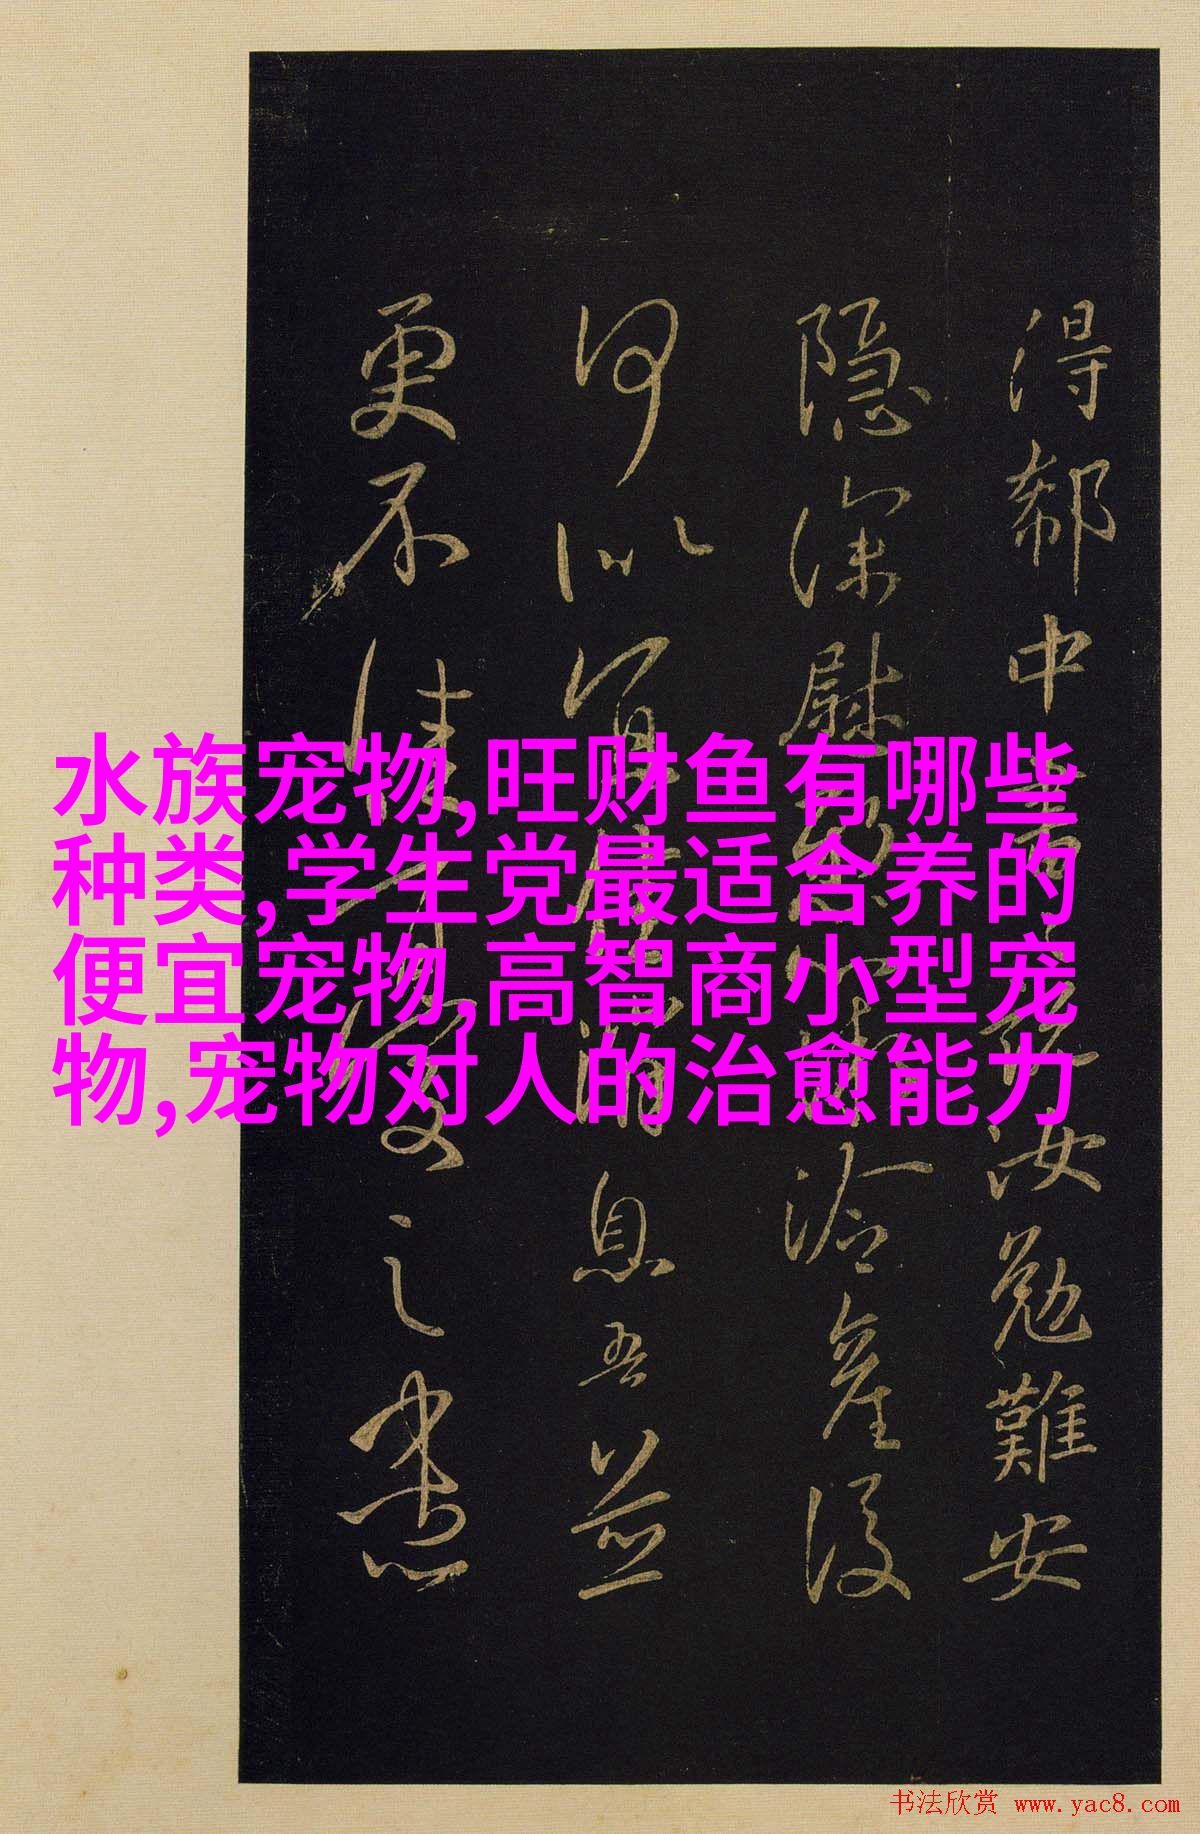 得郗中汝勉難安
隐深慰冷產後
何以息吾並
更不佳之
水族宠物,旺财鱼有哪些
种类,学生党最适合养的
便宜宠物,高智商小型宠
物,宠物对人的治愈能力
书法欣赏 www.yac8.com